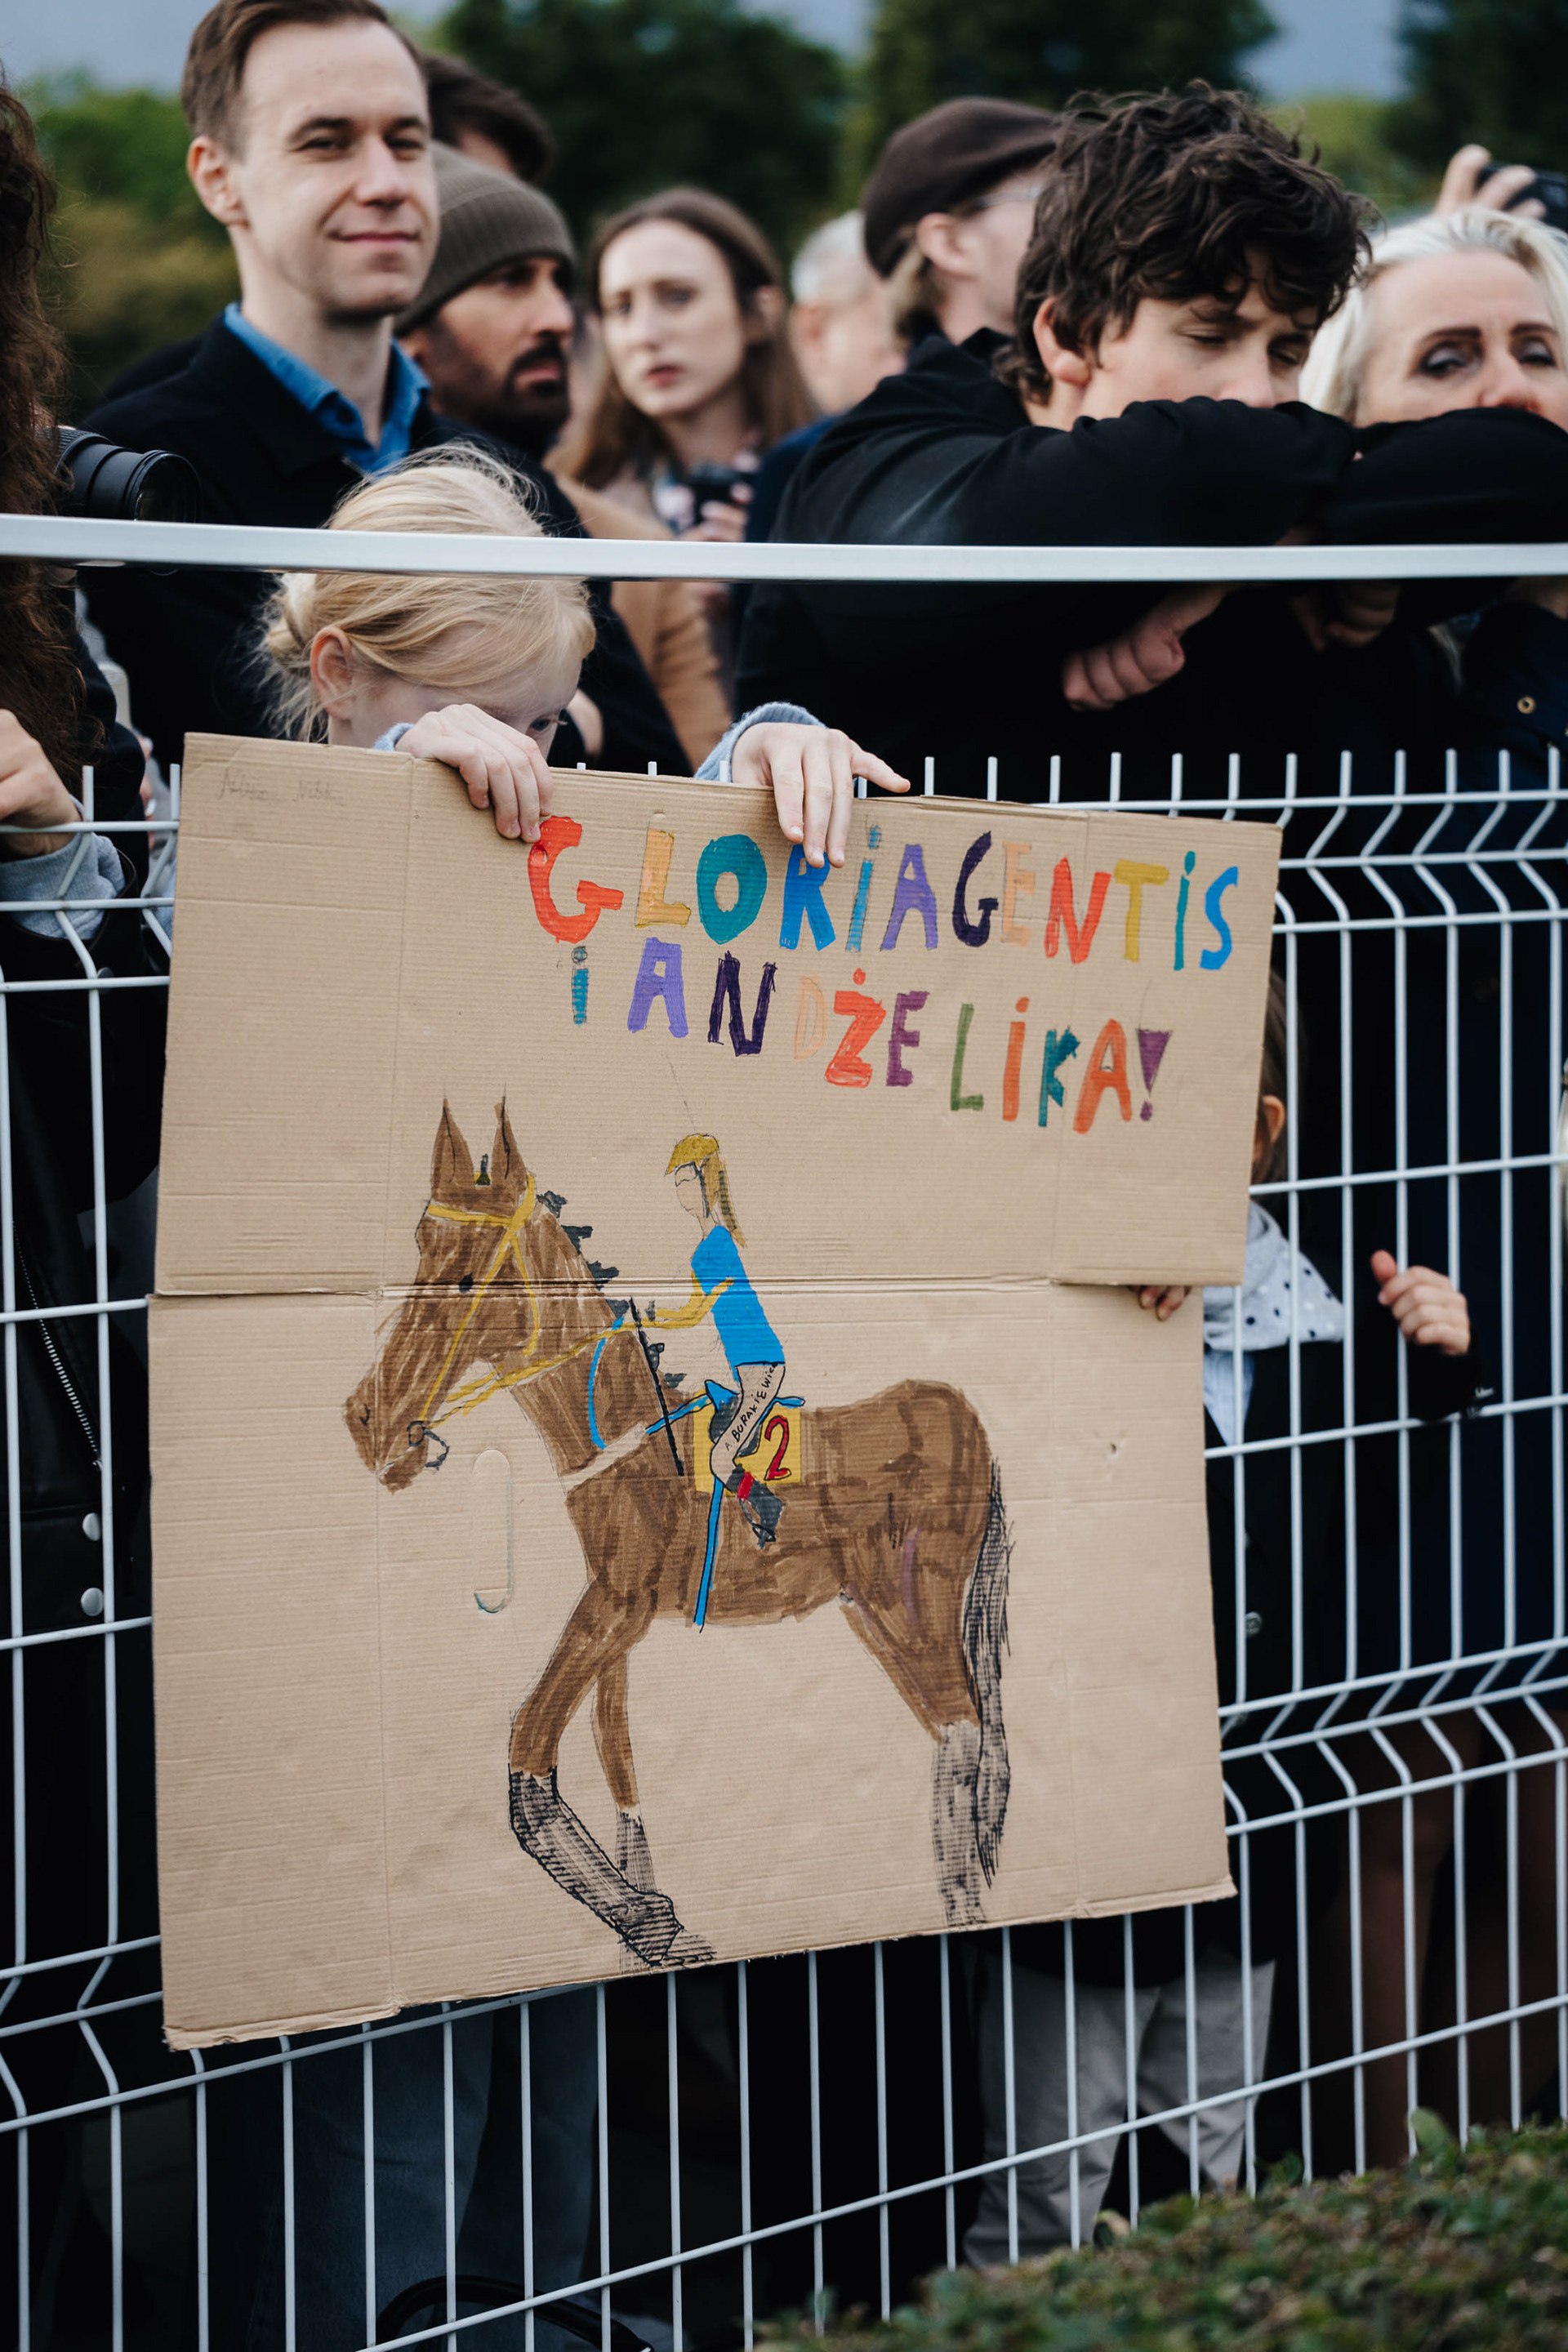 GLORIAGENTIS
i ANDŻELiKA!
A BURAKIEWICZ
2